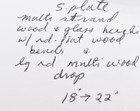 s. plate
multi strand
wood & glass heigh
w/rd. flat wood
beads &
lg rd multi wood
drop
18" → 22"